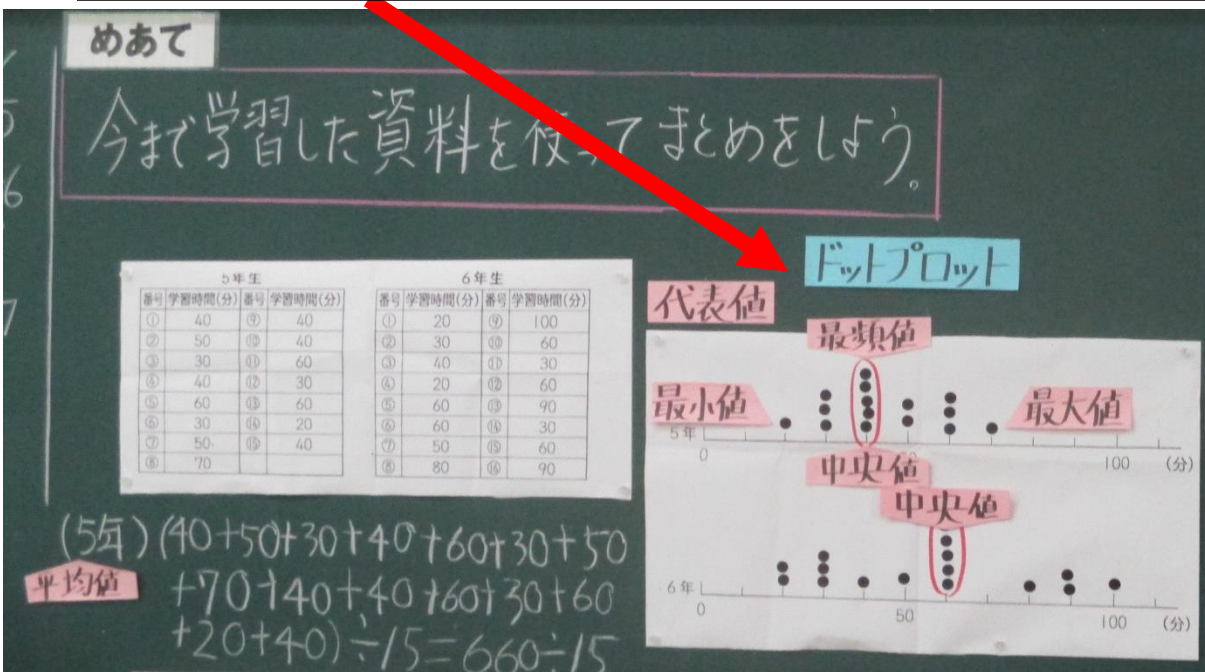 めあて
今まで学習した資料を使ってまとめをしよう。
5年生
番号 学習時間(分) 番号 学習時間(分)
① 40 ⑨ 40
② 50 ⑩ 40
③ 30 ⑪ 60
④ 40 ⑫ 30
⑤ 60 ⑬ 60
⑥ 30 ⑭ 20
⑦ 50 ⑮ 40
⑧ 70
6年生
番号 学習時間(分) 番号 学習時間(分)
① 20 ⑨ 100
② 30 ⑩ 60
③ 40 ⑪ 30
④ 20 ⑫ 60
⑤ 60 ⑬ 90
⑥ 60 ⑭ 30
⑦ 50 ⑮ 60
⑧ 80 ⑯ 90
ドットプロット
代表値
最頻値
最小値
最大値
5年
0 100 (分)
中央値
中央値
6年
0 50 100 (分)
平均値
(5年)(40+50+30+40+60+30+50
+70+40+40+60+30+60
+20+40)÷15=660÷15